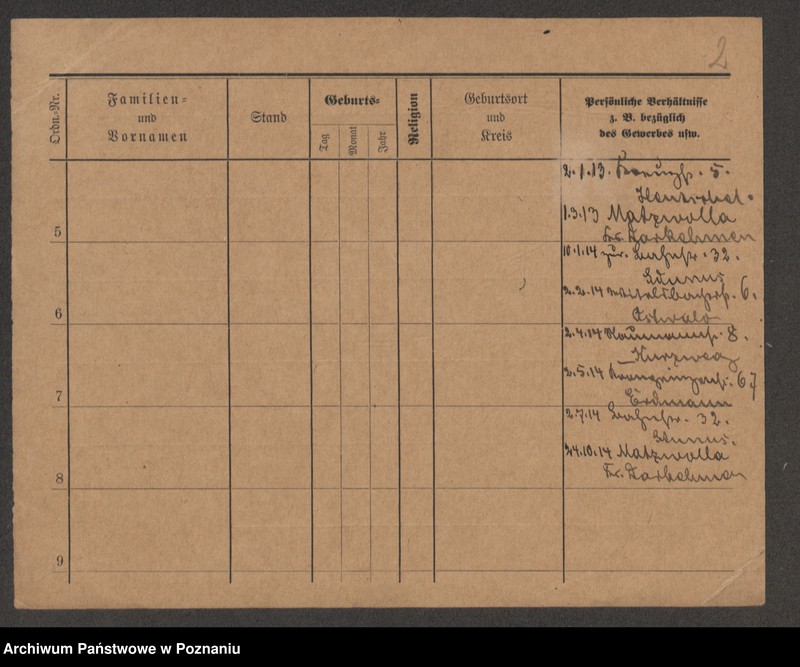 2
Ordn.-Nr.
Familien=
und
Vornamen
Stand
Geburts=
Tag
Monat
Jahr
Religion
Geburtsort
und
Kreis
Persönliche Verhältnisse
z. B. bezüglich
des Gewerbes usw.
2.1.13. 5.
1.3.13 Matzwolla
5
Kr. Darkehmen
10.1.14 zur. Bahnstr. 32.
2.2.14 6.
6
Ostwald
2.4.14 Naumannstr. 8.
Kurzweg
2.5.14 Kronprinzenstr. 67
7
Erdmann
2.7.14 Bahnstr. 32.
24.10.14 Matzwolla
8
Kr. Darkehmen
9
Archiwum Państwowe w Poznaniu